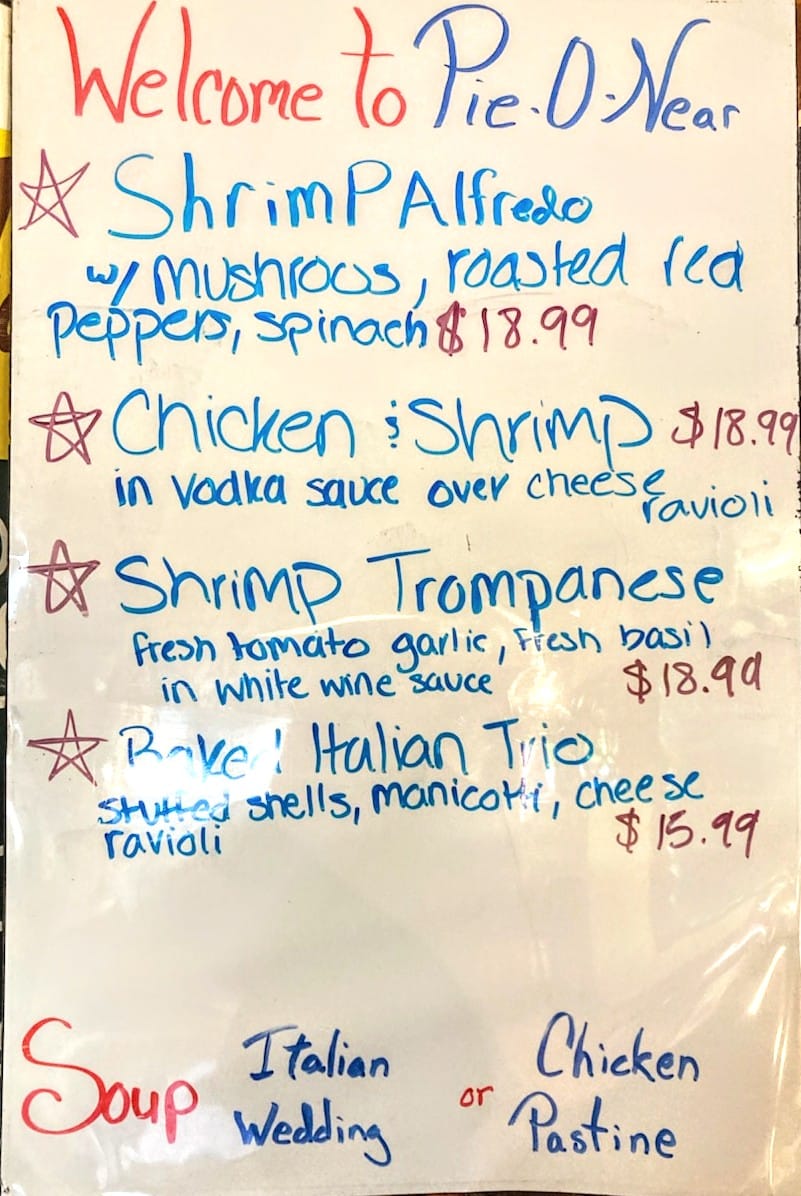 Welcome to Pie-O-Near
Shrimp Alfredo
w/ mushroos, roasted red
peppers, spinach $18.99
Chicken & Shrimp $18.99
in vodka sauce over cheese
ravioli
Shrimp Trompanese
fresh tomato garlic, fresh basil
in white wine sauce $18.99
Baked Italian Trio
stuffed shells, manicotti, cheese
ravioli $15.99
Soup Italian Wedding or Chicken Pastine